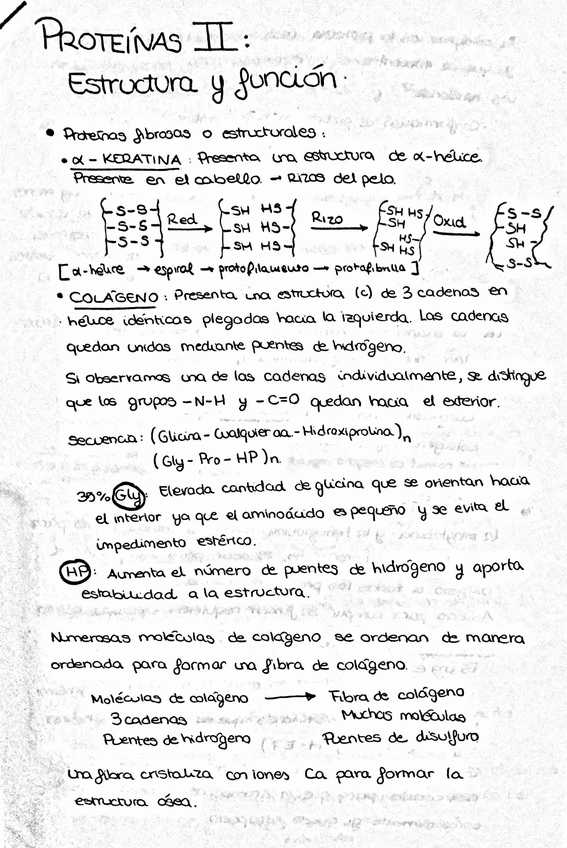 PROTEÍNAS II:
Estructura y función.
• Proteínas fibrosas o estructurales:
• α-KERATINA: Presenta una estructura de α-hélice.
Presente en el cabello. → Rizos del pelo.
S-S SH HS SH HS S-S
-S-S- Red SH HS Rizo SH Oxid SH
S-S SH HS HS SH
SH HS S-S
[α-hélice → espiral → protofilamento → protofibrilla]
• COLÁGENO: Presenta una estructura (c) de 3 cadenas en
hélice idénticas plegadas hacia la izquierda. Las cadenas
quedan unidas mediante puentes de hidrógeno.
Si observamos una de las cadenas individualmente, se distingue
que los grupos -N-H y -C=O quedan hacia el exterior.
Secuencia: (Glicina-Cualquier aa.-Hidroxiprolina)n
(Gly-Pro-HP)n
35% Gly: Elevada cantidad de glicina que se orientan hacia
el interior ya que el aminoácido es pequeño y se evita el
impedimento estérico.
HP: Aumenta el número de puentes de hidrógeno y aporta
estabilidad a la estructura.
Numerosas moléculas de colágeno se ordenan de manera
ordenada para formar una fibra de colágeno.
Moléculas de colágeno → Fibra de colágeno
3 cadenas Muchas moléculas
Puentes de hidrógeno Puentes de disulfuro
Una fibra cristaliza con iones Ca para formar la
estructura ósea.